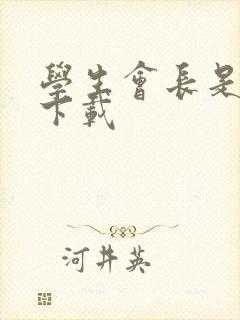 學生會長是
下載
河井英